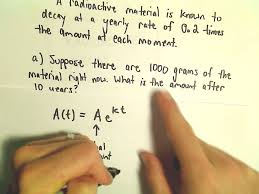 A radioactive material is known to
decay at a yearly rate of 0.2 times
the amount at each moment.
a) Suppose there are 1000 grams of the
material right now. What is the amount after
10 years?
A(t) = A e^kt